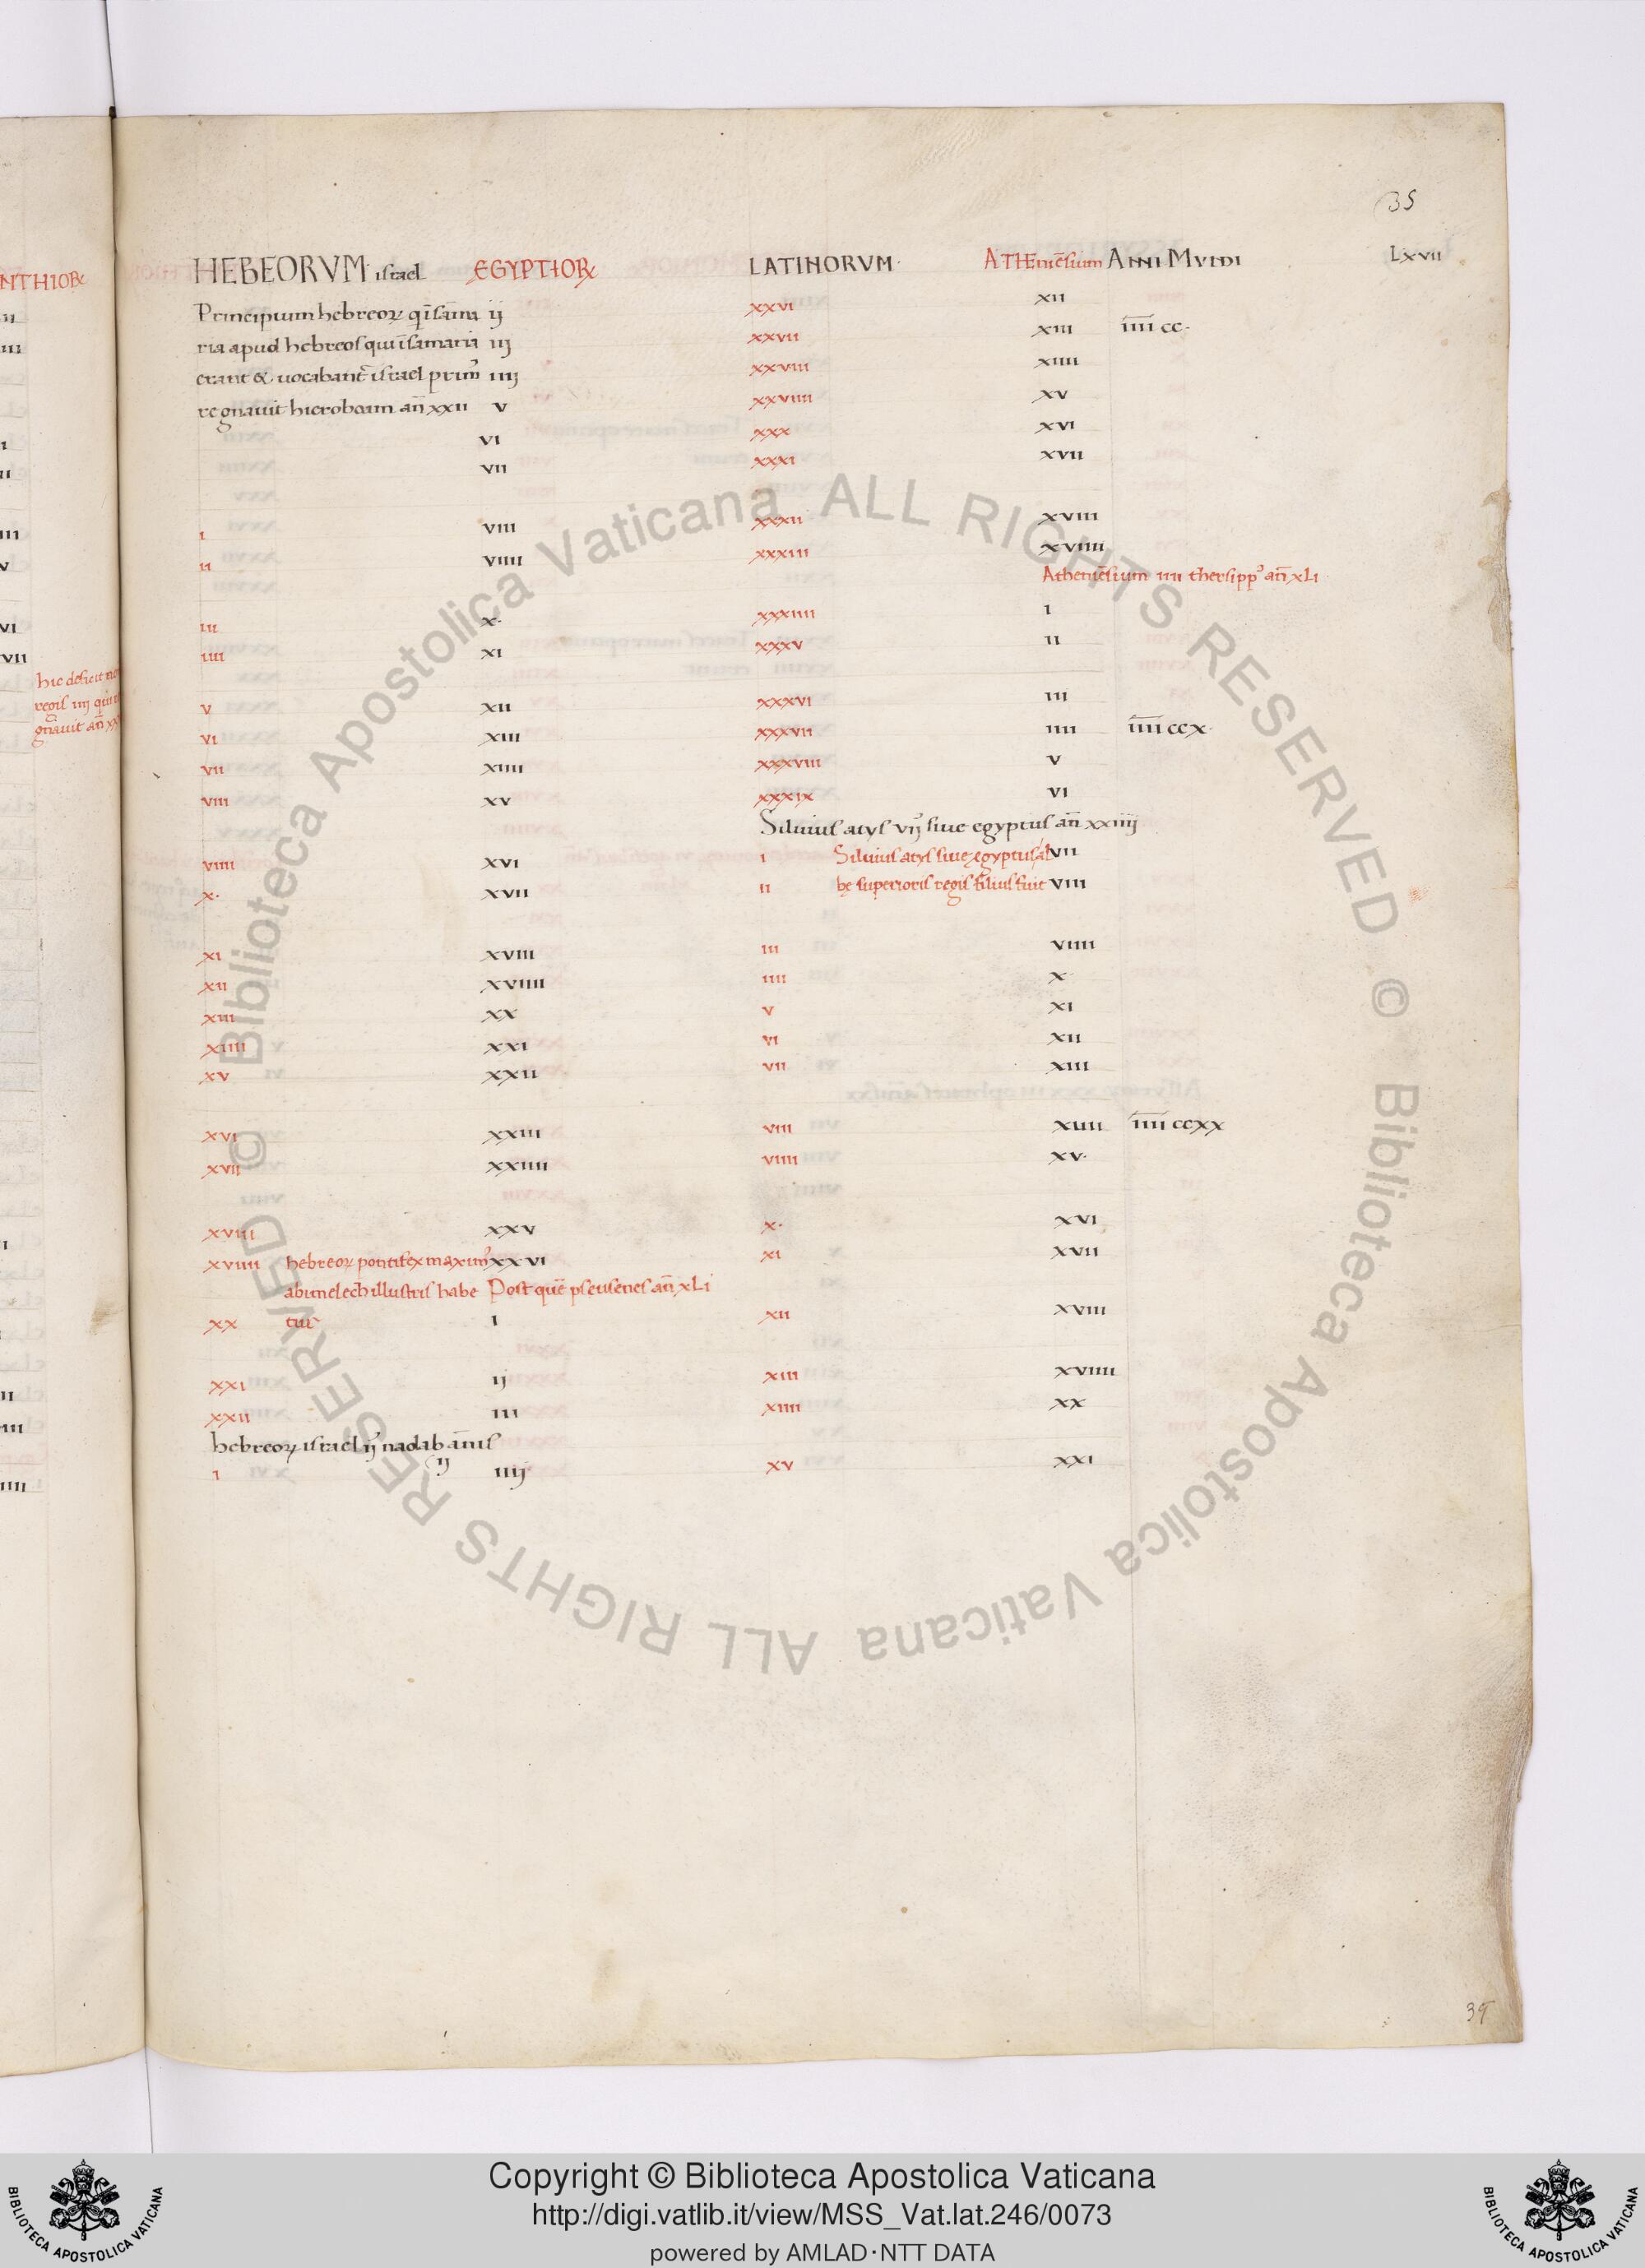 35
NTHIORꝝ HEBEORVM israel EGYPTIORꝝ LATINORVM· ATHEniēsium ANNI MVNDI LXVII
Principium hebreoꝝ q̄ī sāma ij xxvi xii
ria apud hebreos qui ī samaria iij xxvii xiii I̅I̅I̅I̅ cc·
erant & uocabant̄ israel prim᾽ iiij xxviii xiiii
regnauit hieroboam an̄ xxii v xxviiii xv
vi xxx xvi
vii xxxi xvii
i viii xxxii xviii
ii viiii xxxiii xviiii
Atheniēsium iiii thersipp᾽ an̄ xLi
iii x· xxxiiii i
iiii xi xxxv ii
v xii xxxvi iii
vi xiii xxxvii iiii I̅I̅I̅I̅ ccx·
vii xiiii xxxviii v
viii xv xxxix vi
Siluius atys vij᾽ siue egyptus an̄ xxiiij
viiii xvi i Siluius atys siue ęgyptus al vii
x· xvii ii bę superioris regis filius fuit viii
xi xviii iii viiii
xii xviiii iiii x
xiii xx v xi
xiiii xxi vi xii
xv xxii vii xiii
xvi xxiii viii xiiii I̅I̅I̅I̅ ccxx
xvii xxiiii viiii xv·
xviii xxv x· xvi
xviiii hebreoꝝ pontifex maxim᾽ xxvi xi xvii
abimelech illustris habe Post quē pseusenes an̄ xLi
xx tur̄ i xii xviii
xxi ij xiii xviiii
xxii iii xiiii xx
hebreoꝝ israel ij᾽ nadab annis
ij
i iiij xv xxi
hic deficit
regis iiij qui
gnauit an̄
39
© Biblioteca Apostolica Vaticana ALL RIGHTS RESERVED © Biblioteca Apostolica Vaticana ALL RIGHTS RESERVED
Copyright © Biblioteca Apostolica Vaticana
http://digi.vatlib.it/view/MSS_Vat.lat.246/0073
powered by AMLAD·NTT DATA
BIBLIOTECA APOSTOLICA VATICANA
BIBLIOTECA APOSTOLICA VATICANA